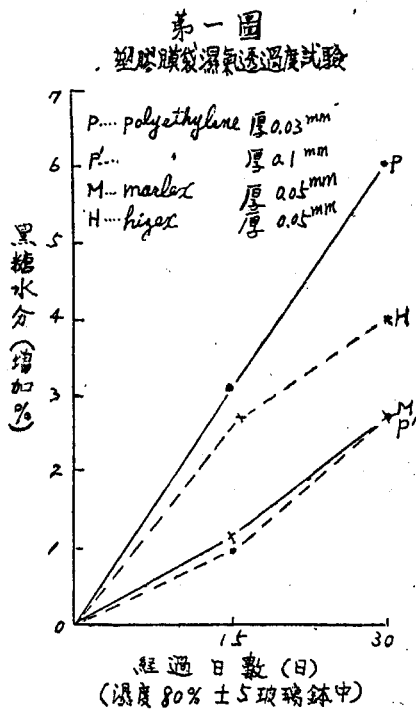 第一圖
塑膠膜袋濕氣透過度試驗
P.... polyethyline 厚0.03mm
P'.... 〃 厚0.1mm
M... marlex 厚0.05mm
H.... hizex 厚0.05mm
黑糖水分(增加%)
7
6
5
4
3
2
1
0
P
H
M
P'
15
30
経過日數(日)
(濕度80%±5玻璃鉢中)